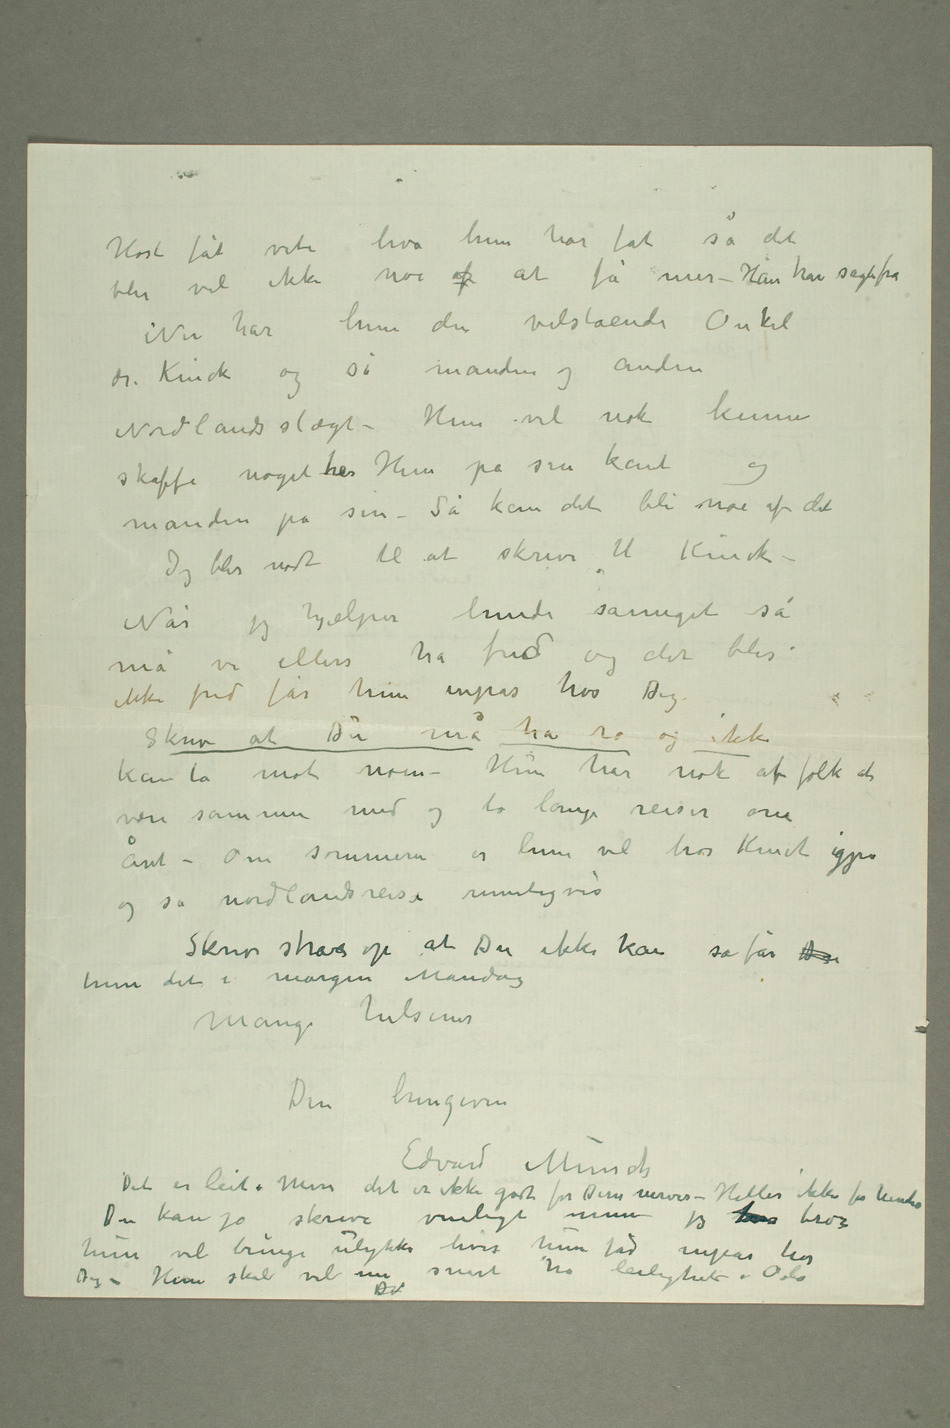 Høst fåt vite hva hun har fåt så det
blir vel ikke noe af at få mer – Han har sagt fra
Nu har hun den velstående Onkel
dr. Kinck og så manden og anden
Nordlandsslægt – Hun vil nok kunne
skaffe noget her Hun på sin kant og
manden på sin – Så kan det bli noe af det
Jeg blir nødt til at skrive til Kinck –
Når jeg hjælper hende så meget så
må vi ellers ha fred og det blir
ikke fred får hun innpas hos Dig.
Skriv at Du må ha ro og ikke
kan ta mot noen – Hun har nok af folk at
være sammen med og to lange reiser om
året – Om sommeren er hun vel hos Kinck igjen
og så nordlandsreise rimeligvis
Skriv strax op at Du ikke kan så får
hun det i morgen Mandag
Mange hilsener
Din hengivne
Edvard Munch
Det er leit. Men det er ikke godt for Dine nerver – Heller ikke for hendes
Du kan jo skrive venligt men jeg tror
hun vil bringe ulykke hvis hun får innpas hos
Dig – Hun skal vel nu snart ha leilighet i Oslo